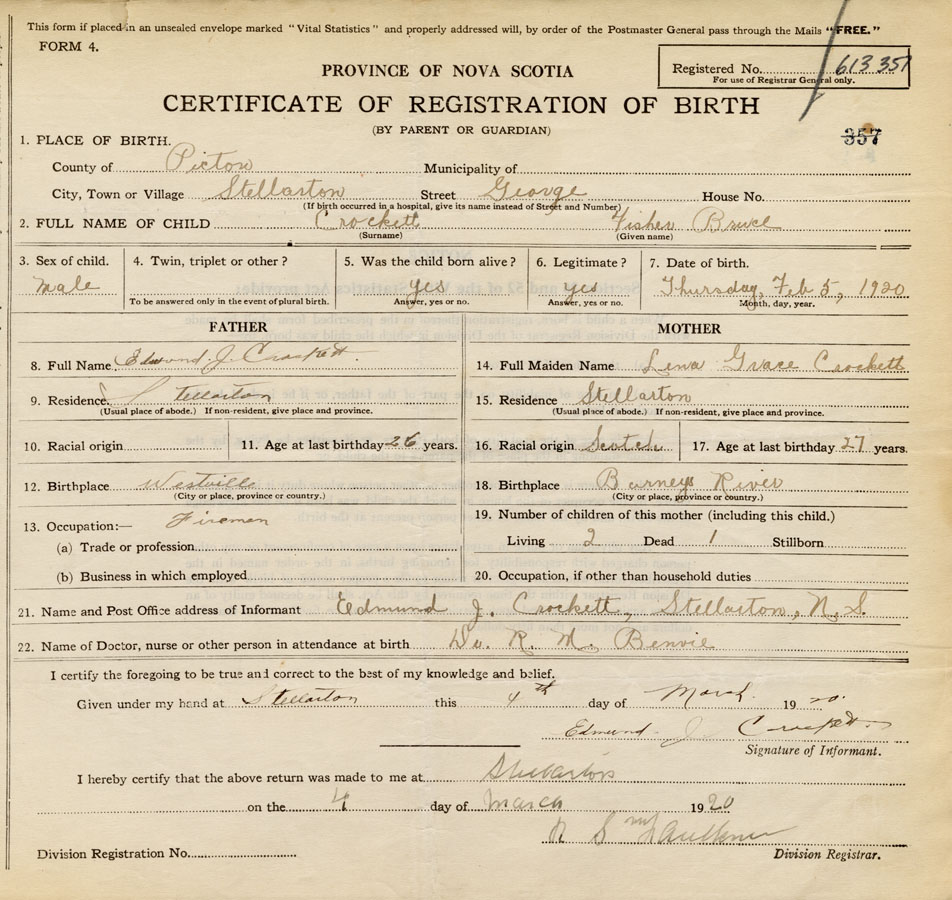 This form if placed in an unsealed envelope marked "Vital Statistics" and properly addressed will, by order of the Postmaster General pass through the Mails "FREE."
FORM 4.
Registered No. 613 357
For use of Registrar General only.
PROVINCE OF NOVA SCOTIA
CERTIFICATE OF REGISTRATION OF BIRTH
(BY PARENT OR GUARDIAN)
357
1. PLACE OF BIRTH.
County of Pictou Municipality of
City, Town or Village Stellarton Street George House No.
(If birth occurred in a hospital, give its name instead of Street and Number)
2. FULL NAME OF CHILD Crockett Fisher Bruce
(Surname) (Given name)
3. Sex of child. 4. Twin, triplet or other? 5. Was the child born alive? 6. Legitimate? 7. Date of birth.
male yes yes Thursday, Feb 5, 1920
To be answered only in the event of plural birth. Answer, yes or no. Answer, yes or no. Month, day, year.
FATHER MOTHER
8. Full Name Edmund J. Crockett 14. Full Maiden Name Lena Grace Crockett
9. Residence. Stellarton 15. Residence Stellarton
(Usual place of abode.) If non-resident, give place and province. (Usual place of abode.) If non-resident, give place and province.
10. Racial origin 11. Age at last birthday 26 years. 16. Racial origin Scotch 17. Age at last birthday 27 years.
12. Birthplace Westville 18. Birthplace Barneys River
(City or place, province or country.) (City or place, province or country.)
13. Occupation:— Fireman 19. Number of children of this mother (including this child.)
(a) Trade or profession Living 2 Dead 1 Stillborn
(b) Business in which employed 20. Occupation, if other than household duties
21. Name and Post Office address of Informant Edmund J. Crockett, Stellarton, N.S.
22. Name of Doctor, nurse or other person in attendance at birth Dr. R. M. Benvie
I certify the foregoing to be true and correct to the best of my knowledge and belief.
Given under my hand at Stellarton this 4th day of March 1920
Edmund J. Crockett
Signature of Informant.
I hereby certify that the above return was made to me at Stellarton
on the 4 day of March 1920
Division Registration No.
Division Registrar.